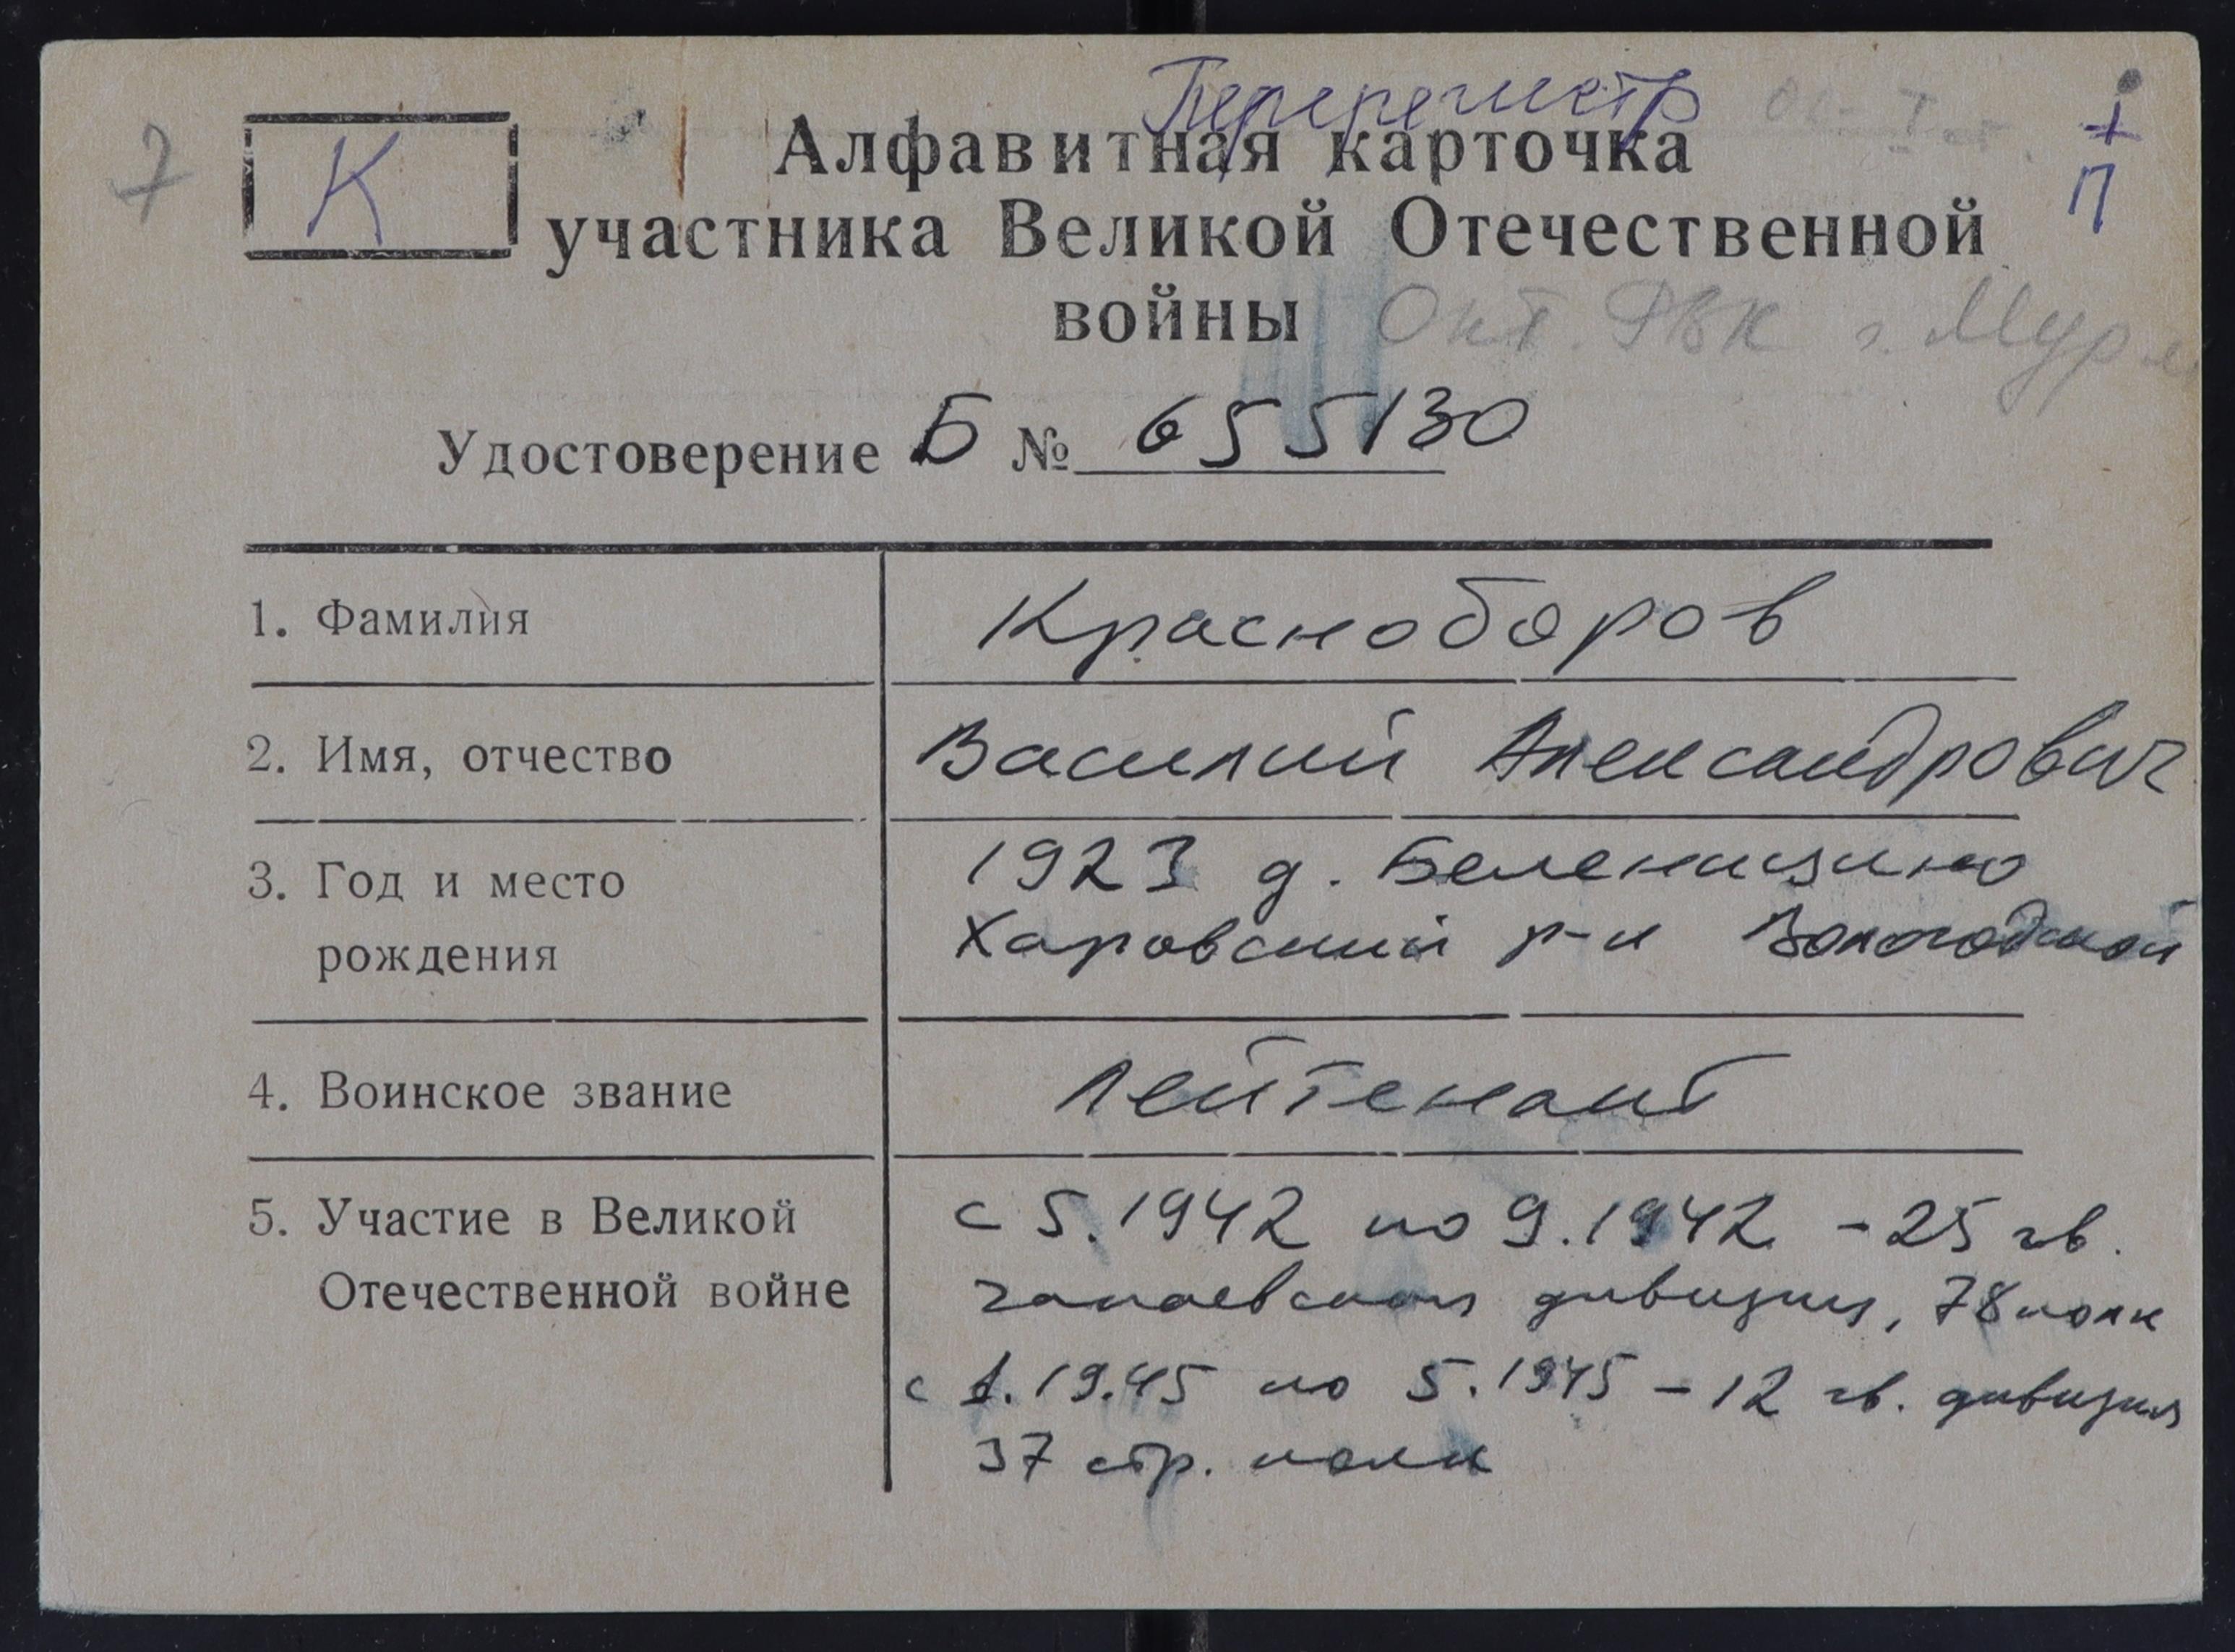 Перерегистр
7
К
Алфавитная карточка
участника Великой Отечественной
войны
Окт. РВК г. Мурм
+
П
Удостоверение Б № 655130
1. Фамилия
Красноборов
2. Имя, отчество
Василий Александрович
3. Год и место
рождения
1923 д.
Харовский р-н Вологодской
4. Воинское звание
Лейтенант
5. Участие в Великой
Отечественной войне
с 5.1942 по 9.1942 - 25 гв.
чапаевская дивизия, 78 полк
с 1.19.45 по 5.1945 - 12 гв. дивизия
37 стр. полк